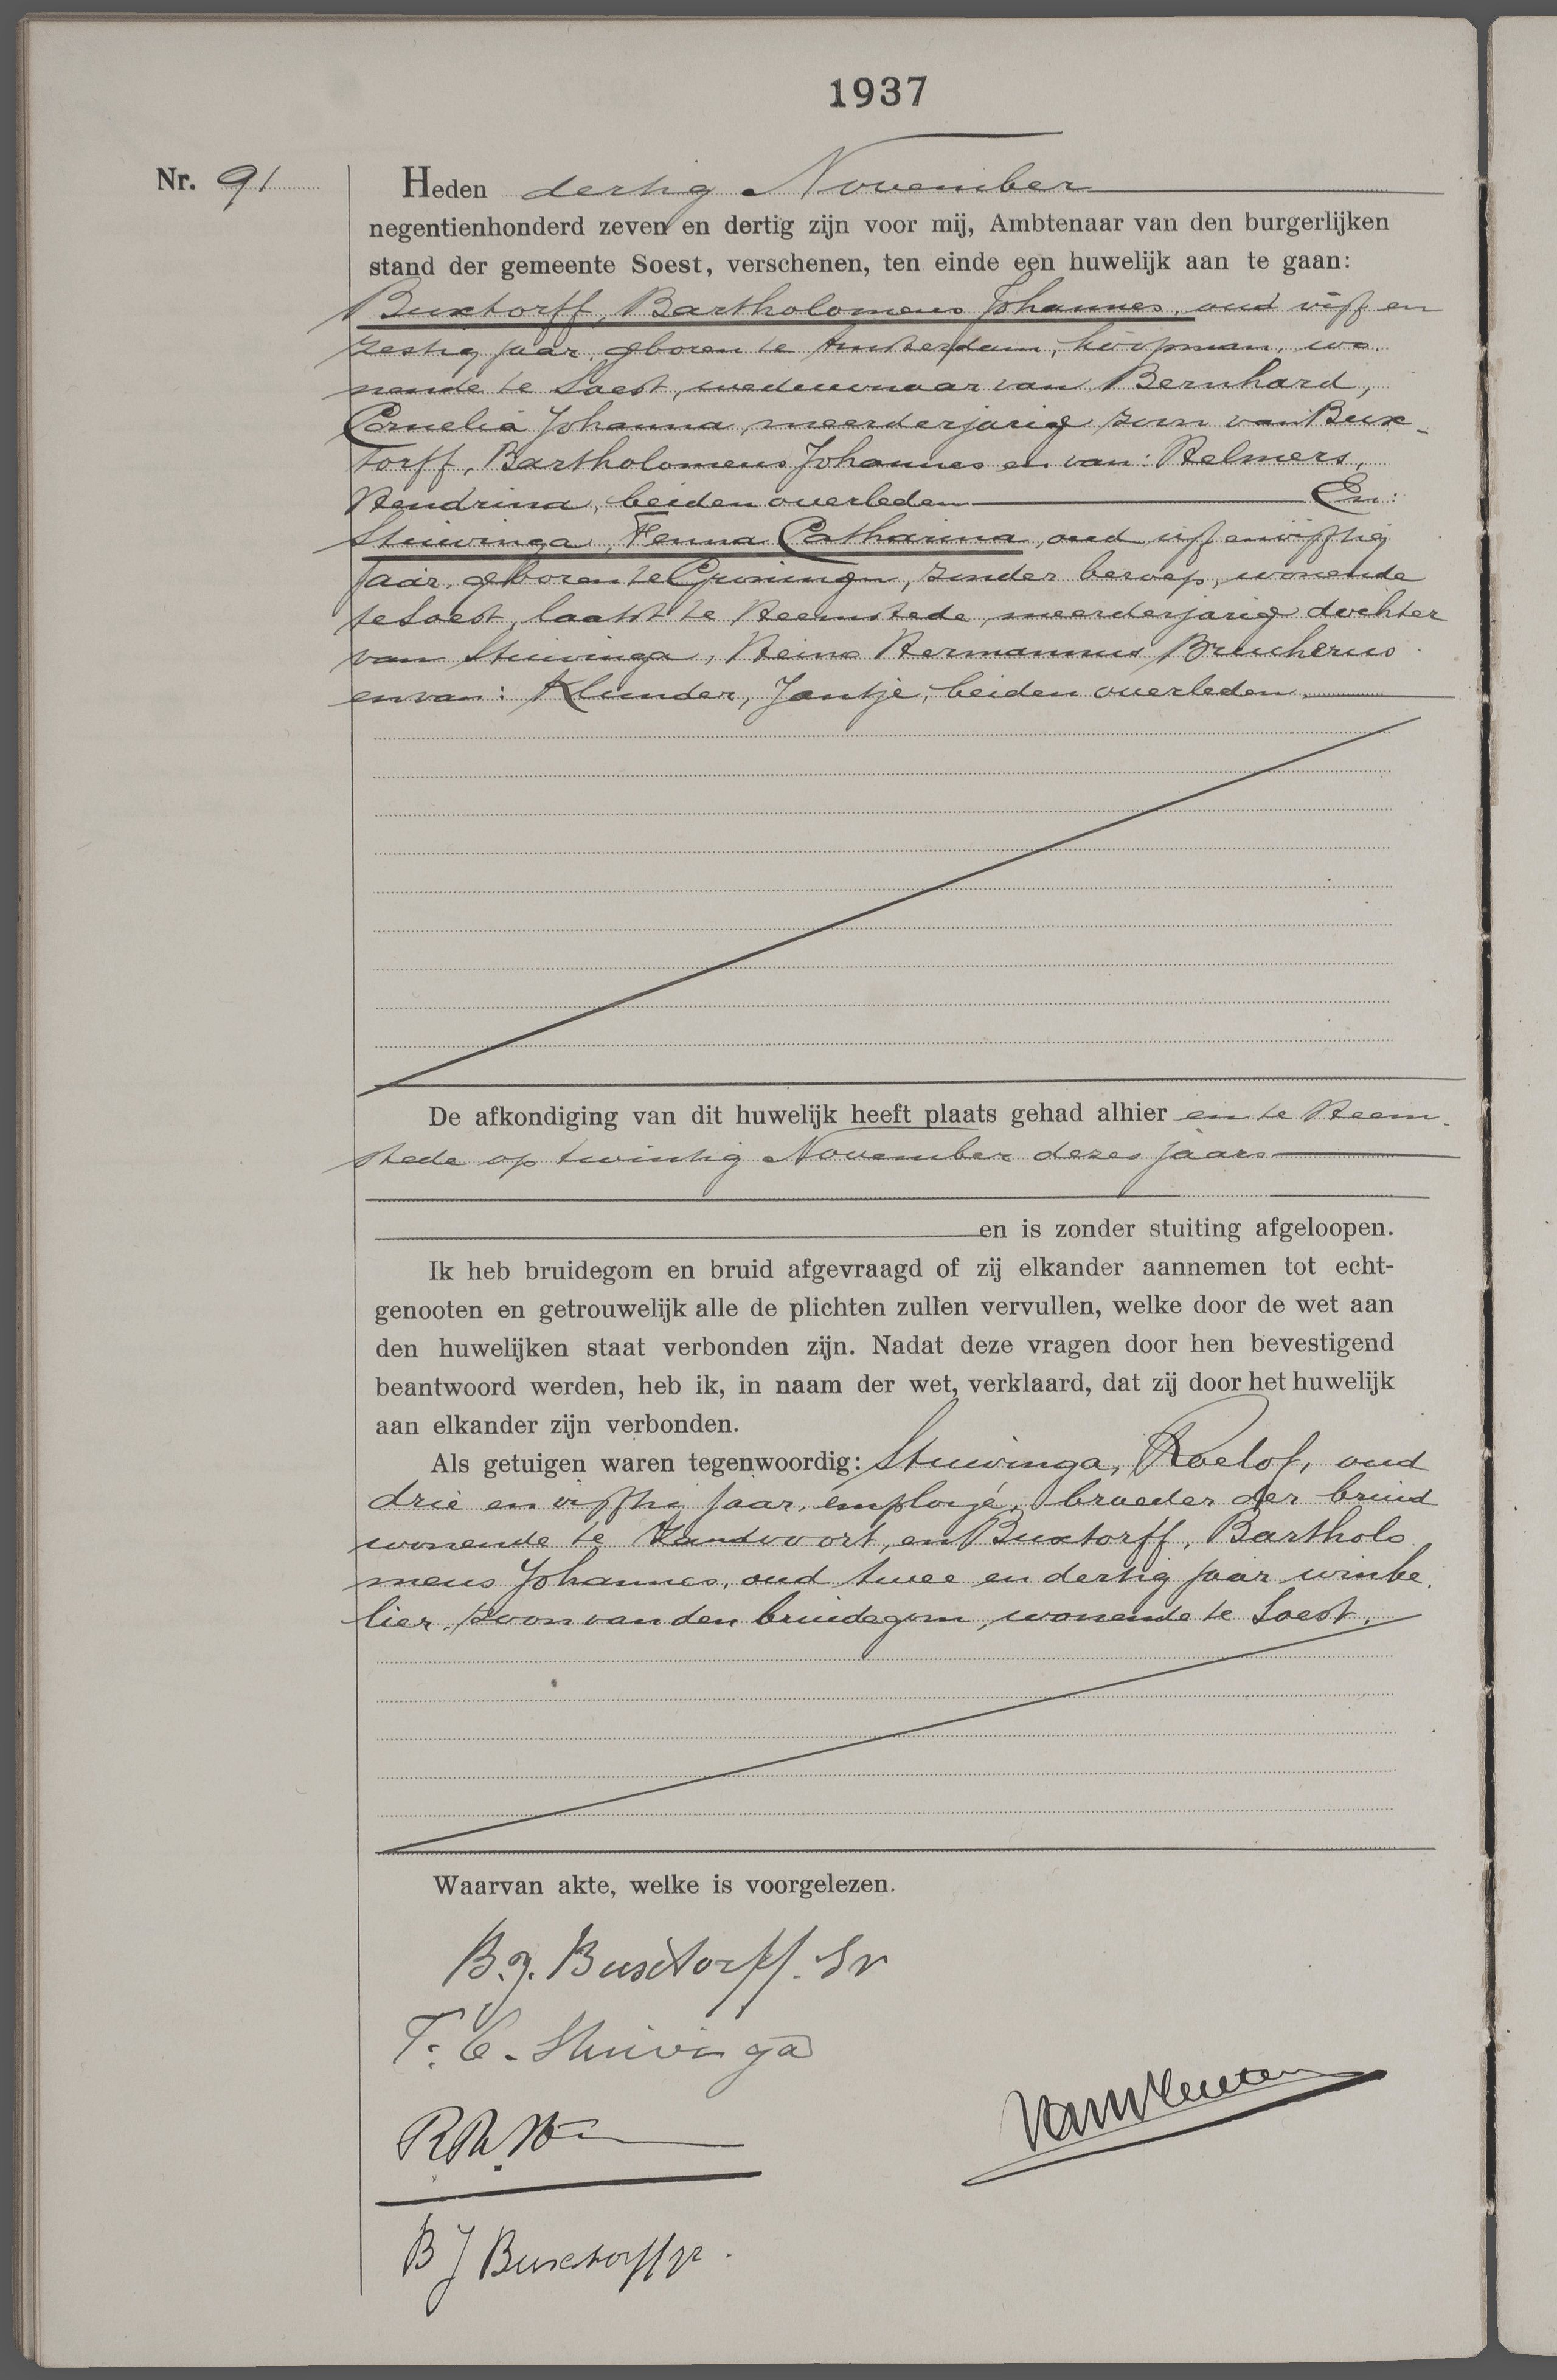 1937
Nr. 91
Heden dertig November
negentienhonderd zeven en dertig zijn voor mij, Ambtenaar van den burgerlijken
stand der gemeente Soest, verschenen, ten einde een huwelijk aan te gaan:
Buxtorff, Bartholomeus Johannes, oud vijf en
zestig jaar, geboren te Amsterdam, koopman, wo-
nende te Soest, weduwnaar van Bernhard,
Cornelia Johanna, meerderjarig zoon van Bux-
torff, Bartholomeus Johannes en van: Helmers,
Hendrina, beiden overleden En:
Stuivinga, Fenna Catharina, oud vijf en vijftig
jaar, geboren te Groningen, zonder beroep, wonende
te Soest, laatst te Heemstede, meerderjarig dochter
van Stuivinga, Heino Hermannus Brucherus
en van: Klunder, Jantje, beiden overleden.
De afkondiging van dit huwelijk heeft plaats gehad alhier en te Heem-
stede op twintig November dezes jaars
en is zonder stuiting afgeloopen.
Ik heb bruidegom en bruid afgevraagd of zij elkander aannemen tot echt-
genooten en getrouwelijk alle de plichten zullen vervullen, welke door de wet aan
den huwelijken staat verbonden zijn. Nadat deze vragen door hen bevestigend
beantwoord werden, heb ik, in naam der wet, verklaard, dat zij door het huwelijk
aan elkander zijn verbonden.
Als getuigen waren tegenwoordig: Stuivinga, Roelof, oud
drie en vijftig jaar, employé, broeder der bruid
wonende te Zandvoort, en Buxtorff, Bartholo
meus Johannes, oud twee en dertig jaar winke
lier, zoon van den bruidegom, wonende te Soest.
Waarvan akte, welke is voorgelezen.
B.J. Buxtorff. Sr
F. C. Stuivinga
B J Buxtorff jr.